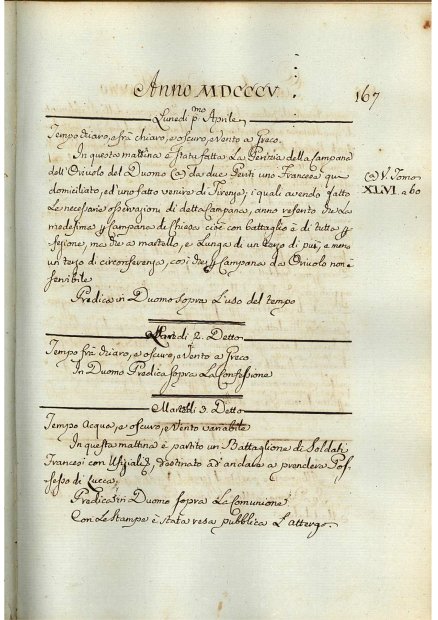 Anno MDCCCV.
167
Lunedì p.mo Aprile
Tempo chiaro, e frà chiaro, e oscuro, e Vento a Greco.
In questa mattina è stata fatta La Perizia della Campana
dell'Oriolo del Duomo @ da due Periti uno Francese qui
@ V. Tomo
domiciliato, ed uno fatto venire di Firenze, i quali avendo fatto
XLVI a 60
Le necessarie osservazioni di detta Campana, anno referito che La
medesima p Campana di Chiesa cioè con battaglio è di tutta p
fezione, ma che a martello, e Lunga di un terzo di più, e meno
un terzo di circonferenza, così che p Campana da Oriolo non è
servibile
Predica in Duomo sopra L'uso del tempo
2. Detto
Tempo frà chiaro, e oscuro, e Vento a Greco
In Duomo Predica sopra La Confessione
3. Detto
Tempo Acqua, e oscuro, e Vento variabile
In questa mattina è partito un Battaglione di Soldati
Francesi con Ufiziali, destinato ad andare a prendere Pos-
sesso di Lucca
Predica in Duomo sopra La Comunione
Con Le Stampe è stata resa pubblica L'attergo.